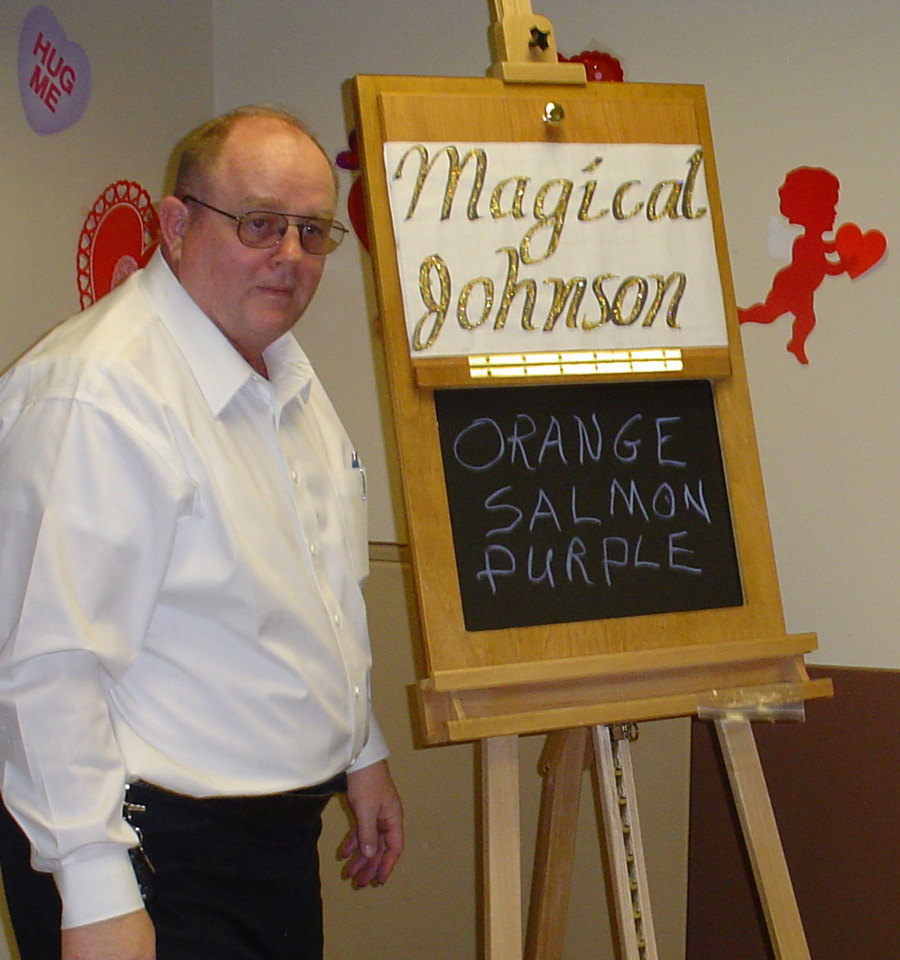 HUG
ME
Magical
Johnson
ORANGE
SALMON
PURPLE